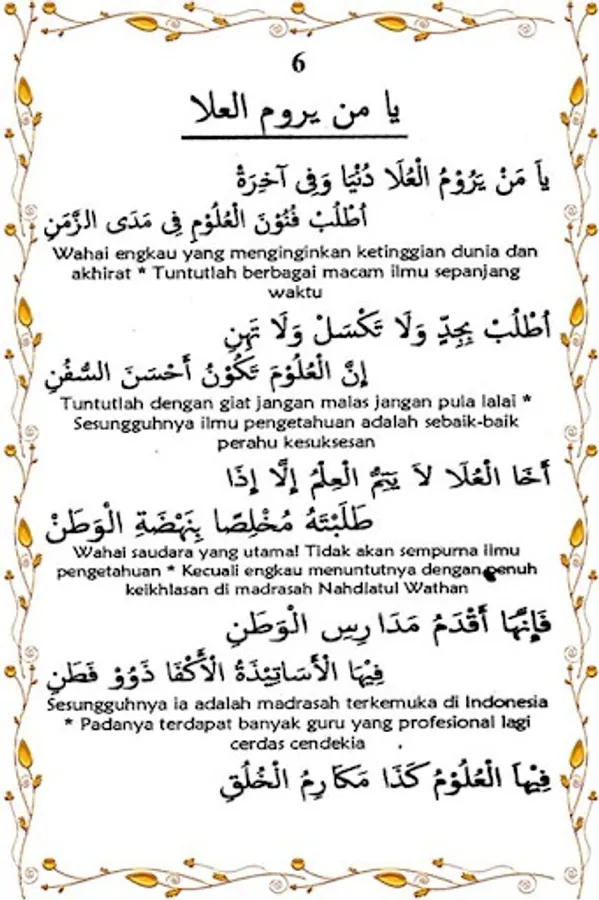 6
يا من يروم العلا
يَا مَنْ يَرُوْمُ الْعُلَا دُنْيَا وَفِى آخِرَةْ
اُطْلُبْ فُنُوْنَ الْعُلُوْمِ فِى مَدَى الزَّمَنِ
Wahai engkau yang menginginkan ketinggian dunia dan
akhirat * Tuntutlah berbagai macam ilmu sepanjang
waktu
اُطْلُبْ بِجِدٍّ وَلَا تَكْسَلْ وَلَا تَهِنِ
إِنَّ الْعُلُوْمَ تَكُوْنُ أَحْسَنَ السُّفُنِ
Tuntutlah dengan giat jangan malas jangan pula lalai *
Sesungguhnya ilmu pengetahuan adalah sebaik-baik
perahu kesuksesan
أَخَا الْعُلَا لَا يَتِمُّ الْعِلْمُ إِلَّا إِذَا
طَلَبْتَهُ مُخْلِصًا بِنَهْضَةِ الْوَطَنْ
Wahai saudara yang utama! Tidak akan sempurna ilmu
pengetahuan * Kecuali engkau menuntutnya dengan penuh
keikhlasan di madrasah Nahdlatul Wathan
فَإِنَّهَا أَقْدَمُ مَدَارِسِ الْوَطَنِ
فِيْهَا الْأَسَاتِيْذَةُ الْأَكْفَا ذَوُوْ فَطَنِ
Sesungguhnya ia adalah madrasah terkemuka di Indonesia
* Padanya terdapat banyak guru yang profesional lagi
cerdas cendekia
فِيْهَا الْعُلُوْمُ كَذَا مَكَارِمُ الْخُلُقِ